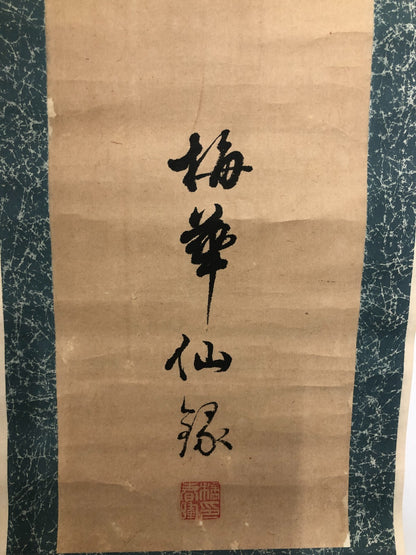 梅華仙緣